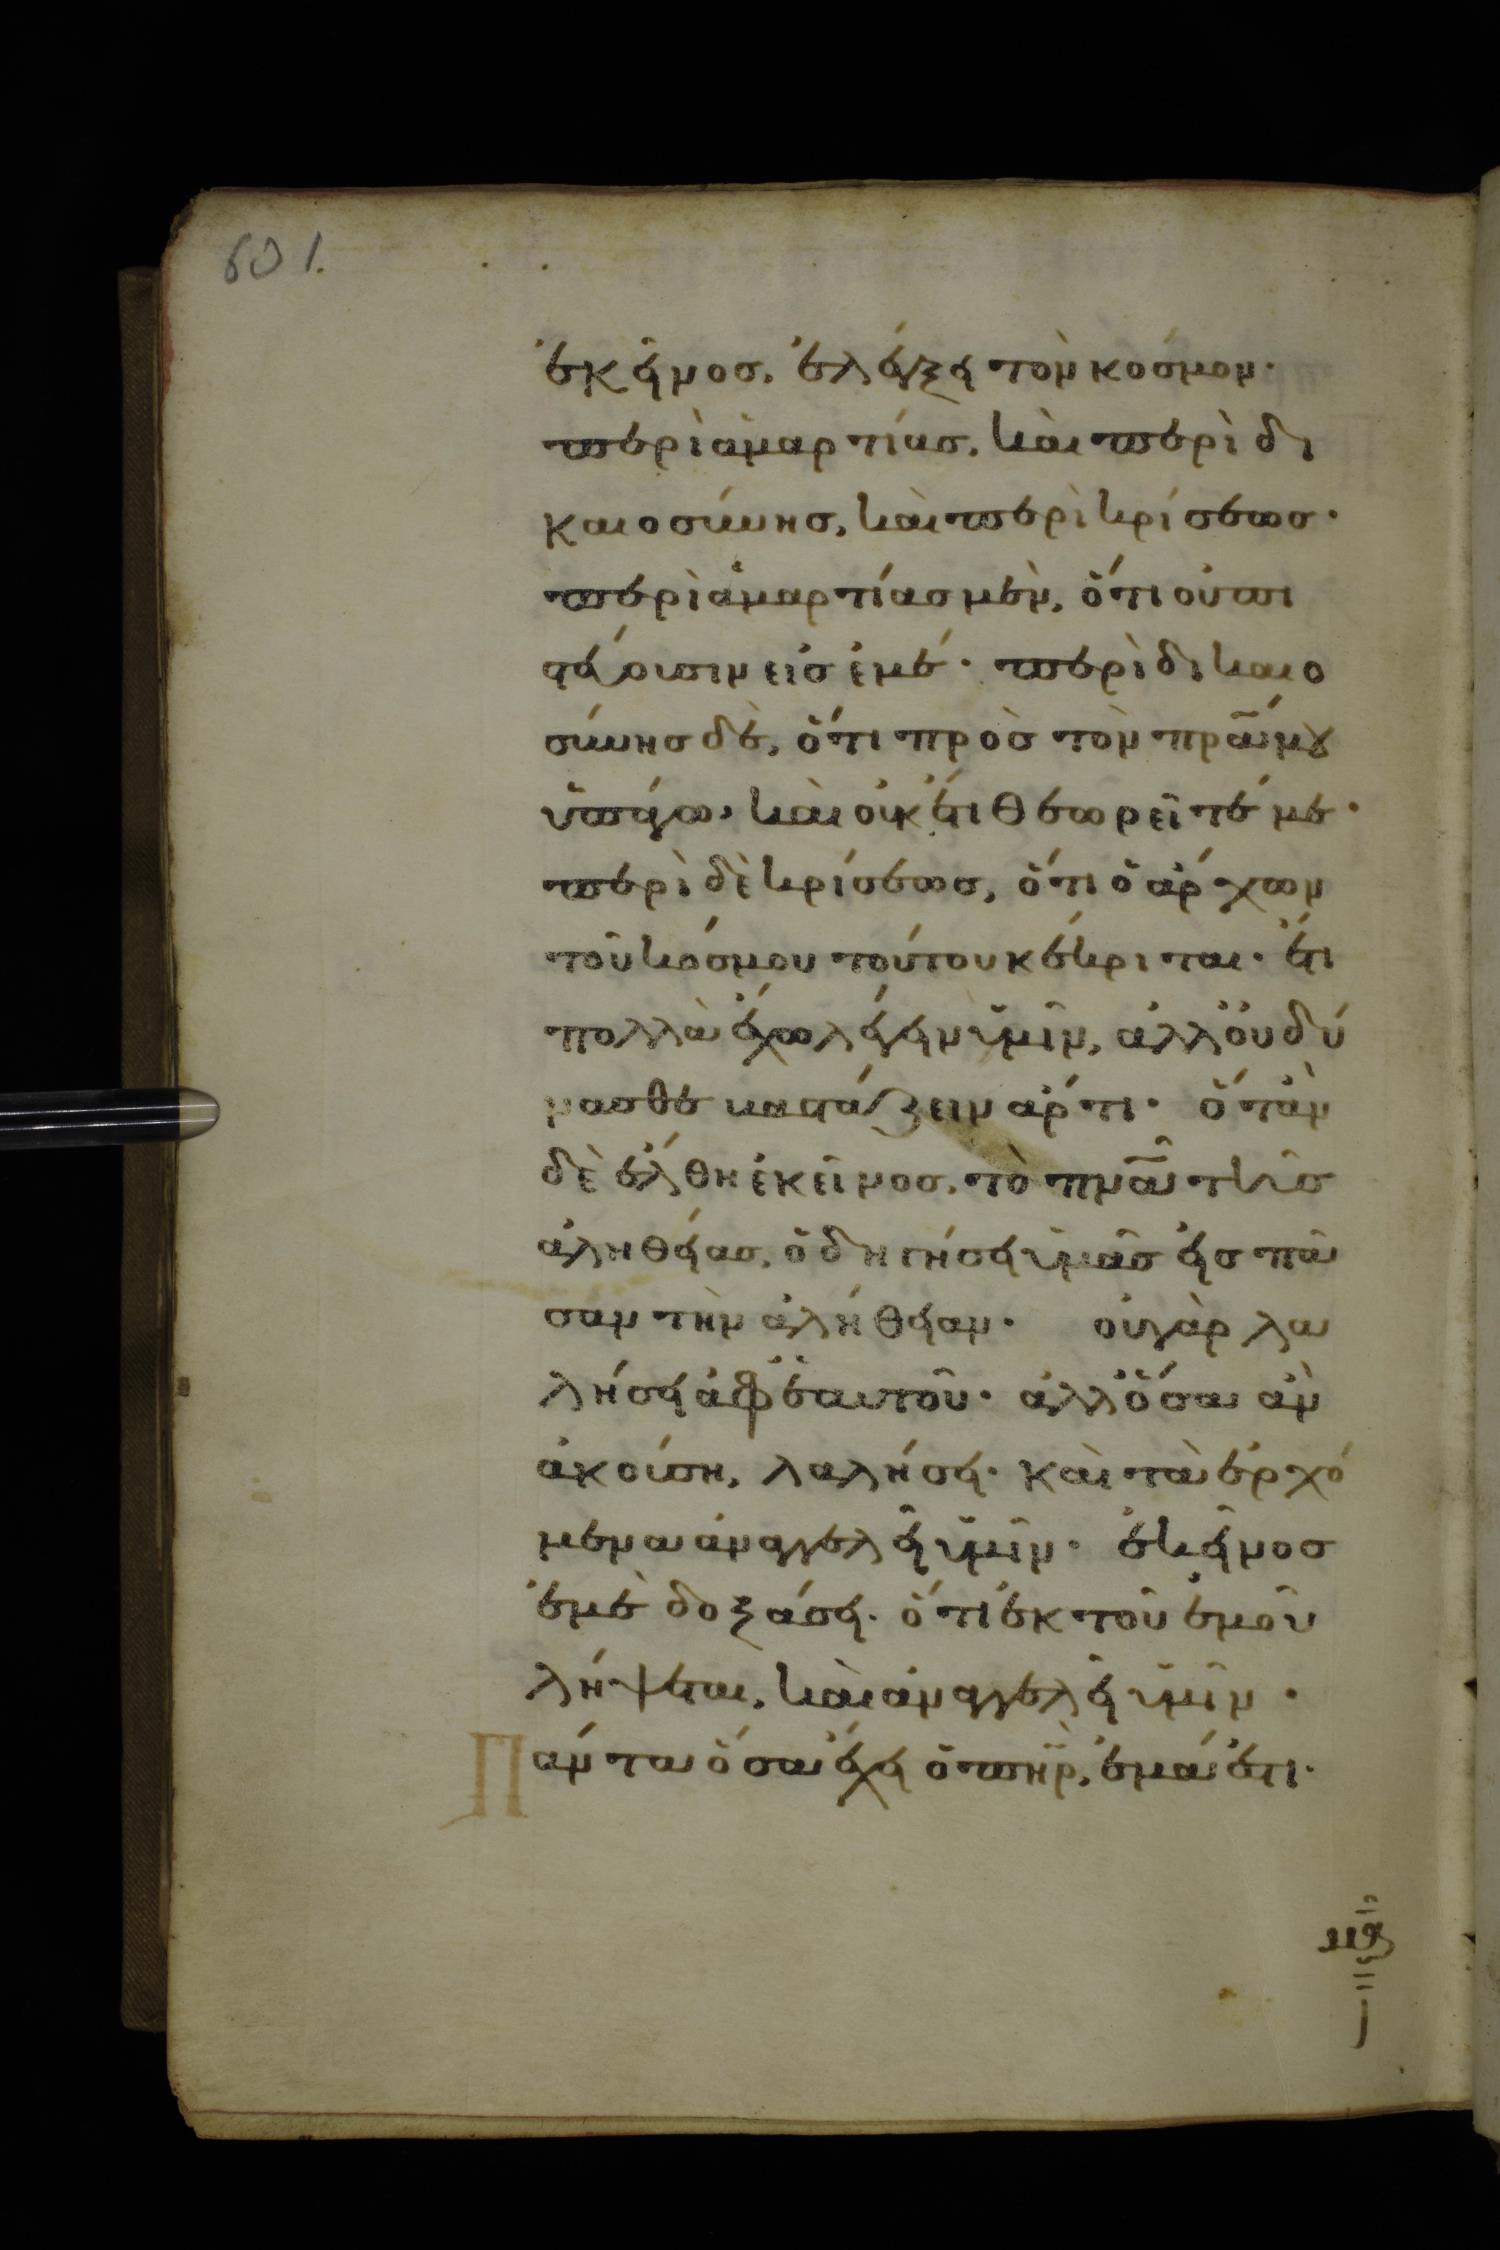 601.
ἐκεῖνος, ἐλέγξει τὸν κόσμον·
περὶ ἁμαρτίας, καὶ περὶ δι
καιοσύνης, καὶ περὶ κρίσεως·
περὶ ἁμαρτίας μὲν, ὅτι οὐ πι
στεύουσιν εἰς ἐμέ· περὶ δικαιο
σύνης δὲ, ὅτι πρὸς τὸν πρ̅α μου
ὑπάγω, καὶ οὐκέτι θεωρεῖτέ με·
περὶ δὲ κρίσεως, ὅτι ὁ ἄρχων
τοῦ κόσμου τούτου κέκριται· ἔτι
πολλὰ ἔχω λέγειν ὑμῖν, ἀλλ' οὐ δύ
νασθε βαστάζειν ἄρτι· ὅταν
δὲ ἔλθη ἐκεῖνος, τὸ πν̅α τῆς
ἀληθείας, ὁδηγήσει ὑμᾶς εἰς πᾶ
σαν τὴν ἀλήθειαν· οὐ γὰρ λα
λήσει ἀφ' ἑαυτοῦ· ἀλλ' ὅσα ἂν
ἀκούση, λαλήσει· καὶ τὰ ἐρχό
μενα ἀναγγελεῖ ὑμῖν· ἐκεῖνος
ἐμὲ δοξάσει· ὅτι ἐκ τοῦ ἐμοῦ
λήψεται, καὶ ἀναγγελεῖ ὑμῖν·
Πάντα ὅσα ἔχει ὁ πη̅ρ, ἐμά ἐστι·